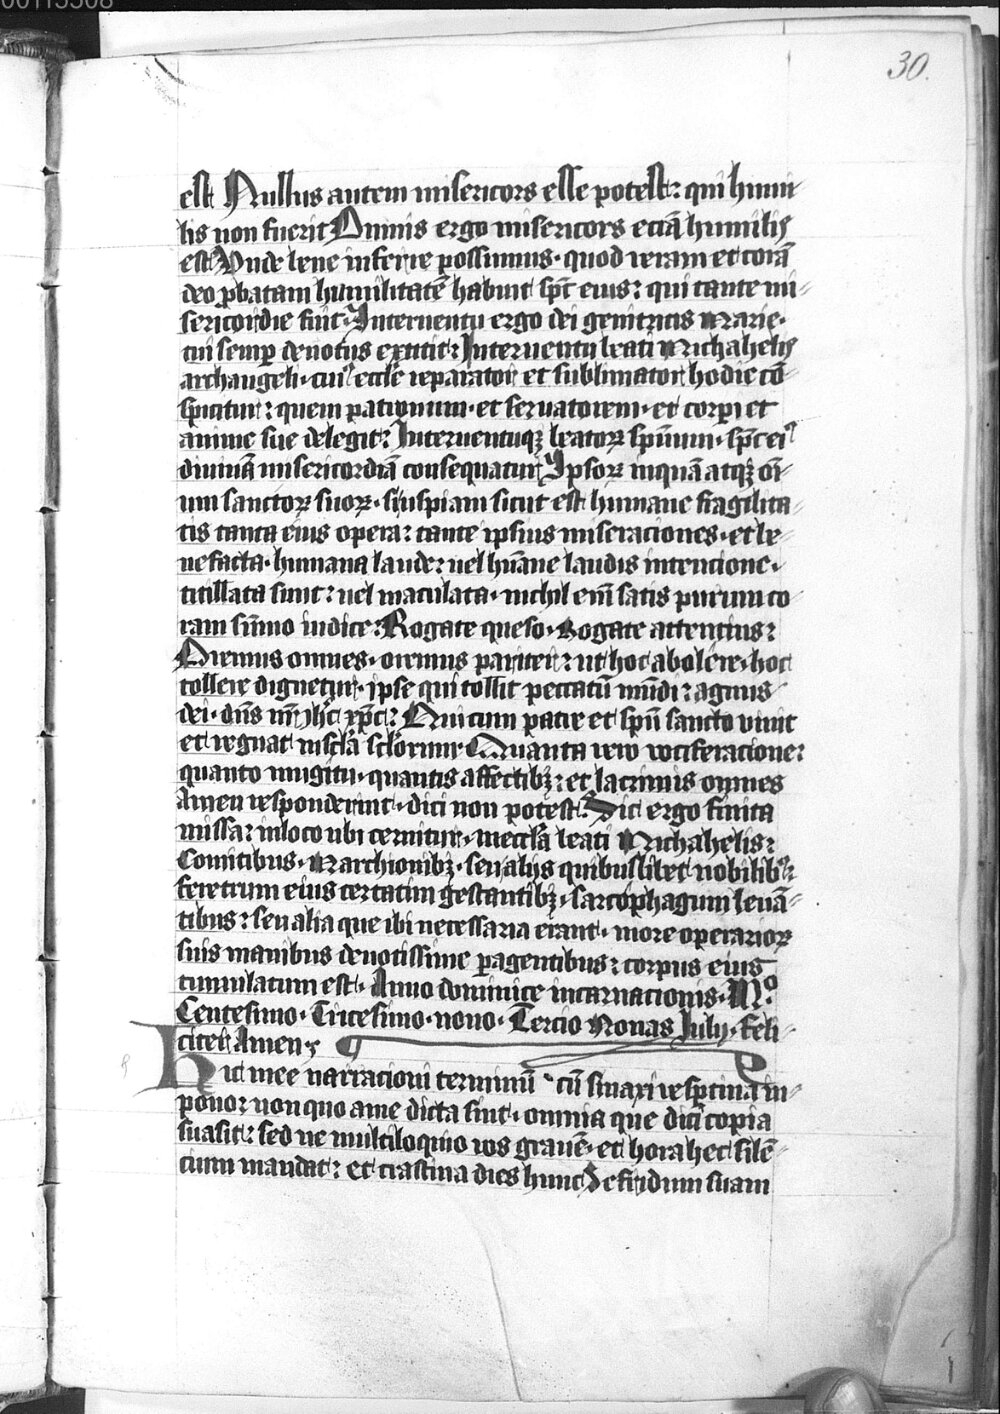 00115508
30.
est Nullus autem misericors esse potest: qui humi
lis non fuerit Omnis ergo misericors eciā humilis
est Unde bene inferre possumus· quod veram et corā
deo ꝓbatam humilitatē habuit spc̄ eius: qui tante mi
sericordie fuit· Interventu ergo dei genitricis Marie·
cui semꝑ devotus extitit: Interventu beati Michahelis
archangeli· cuiꝰ eccl̄e reparator et sublimator hodie cō
spicitur: quem patronum· et servatorem· et corpī et
anime sue delegit: Interventuqꝫ beatoꝝ spūum· spc̄ eiꝰ
divinā misericordiā consequatur Ipsoꝝ inquā atqꝫ oī
um sanctoꝝ suoꝝ· si uspiam sicut est humane fragilita
tis tanta eius opera: tante ipsius miseraciones· et be
nefacta· humana laude: vel hūane laudis intencione·
titillata sunt: vel maculata· nichil em̄ satis purum co
ram sūmo iudice: Rogate queso· Rogate attentius:
Oremus omnes· oremus pariter: ut hoc abolere· hoc
tollere dignetur· ipse qui tollit peccatū mūdi: agnus
dei· dn̄s nr̄ ih̄c xp̄c: Qui cum patre et spū sancto vivit
et regnat in sc̄la sc̄lorum· Quanta vero vociferacione:
quanto mugitu· quantis affectibꝫ: et lacrimis omnes
Amen responderint· dici non potest: Sic ergo finita
missa: in loco ubi cernitur· in eccl̄a beati Michahelis:
Comitibus· Marchionibꝫ· seu aliis quibuslibet nobilibꝰ:
feretrum eius certatim gestantibꝫ· sarcophagum levā
tibus: seu alia que ibi necessaria erant· more operarioꝝ
suis manibus devotissime ꝑagentibus: corpus eius
tumulatum est· Anno dominice incarnacionis· Mº
Centesimo· Tricesimo· nono· Tercio Nonas Julij· feli
citer Amen
Hic mee narracioni terminū cū sinaxi vesꝑtina in
pono: non quo a me dicta sint· omnia que dici copia
suasit: sed ne multiloquio vos gravē· et hora hec silē
cium mandat: et crastina dies hunc suam